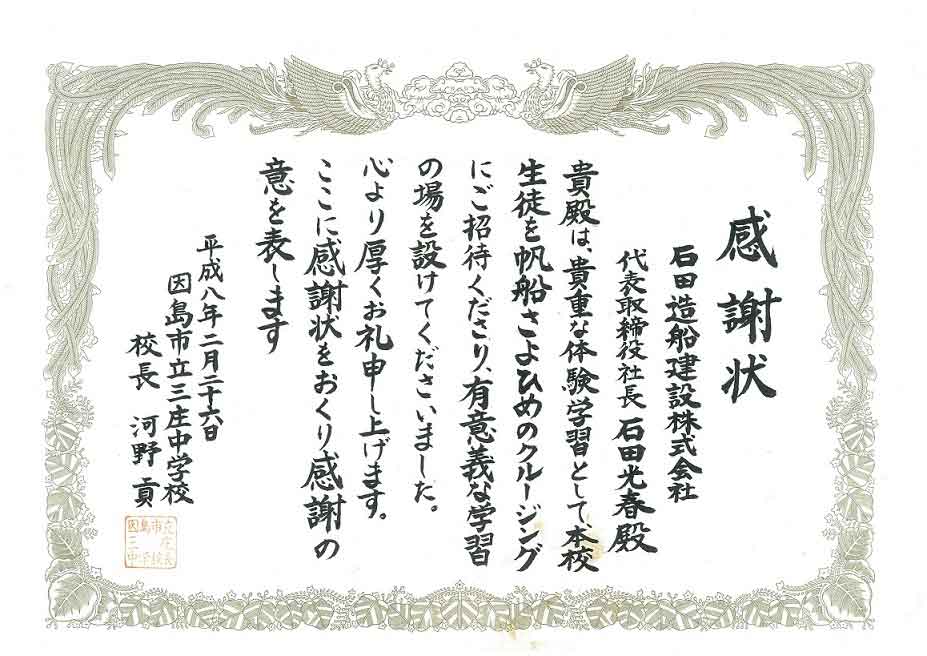 感謝状
石田造船建設株式会社
代表取締役社長 石田光春殿
貴殿は、貴重な体験学習として、本校
生徒を帆船さよひめのクルージング
にご招待くださり、有意義な学習
の場を設けてくださいました。
心より厚くお礼申し上げます。
ここに感謝状をおくり感謝の
意を表します
平成八年二月二十六日
因島市立三庄中学校
校長 河野 貢
因島市立
三庄
中学校長